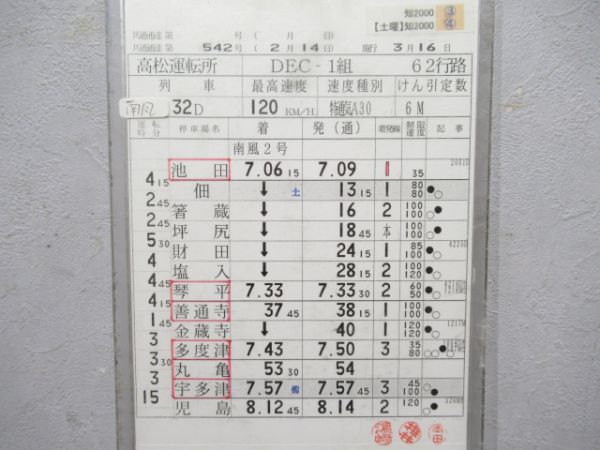 知2000 ③
【土曜】知2000 ④
共通施達 第 号 ( 月 日)
共通施達 第 542号 ( 2月14日) 施行 3月16日
高松運転所 DEC-1組 62行路
列車 最高速度 速度種別 けん引定数
南風 32D 120KM/H 特通気A30 6M
運転時分 停車場名 着 発(通) 着発線 制限速度 記事
南風2号
池田 7.06 15 7.09 1 35 2002D
4 15
佃 ↓ 土 13 15 1 80 80
2 45
箸蔵 ↓ 16 2 100 100
2 45
坪尻 ↓ 18 45 本 100 100
5 30
財田 ↓ 24 15 1 85 100 4223D
4
塩入 ↓ 28 15 2 100 100
4 45
琴平 7.33 7.33 30 2 60 50
4 15
善通寺 37 45 38 15 1 100 100
1 45
金蔵寺 ↓ 40 1 120 120 1217M
3
多度津 7.43 7.50 3 35 80
3 30
丸亀 53 30 54
3
宇多津 7.57 7.57 45 3 45 100
15
児島 8.12 45 8.14 2 120